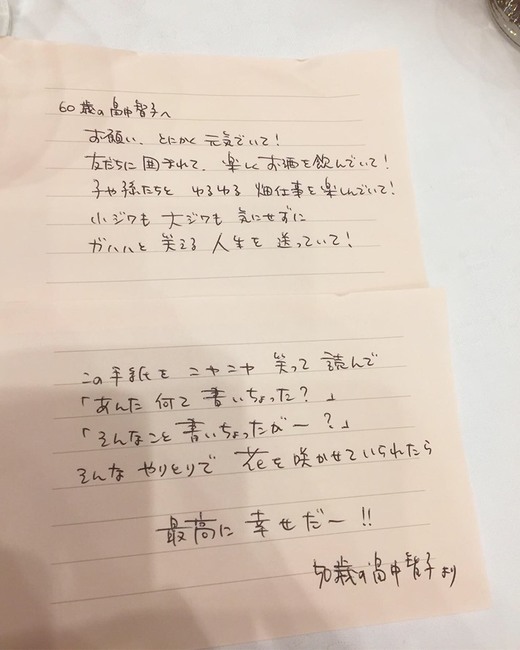 60歳の高中智子へ
お願い、とにかく元気でいて！
友だちに囲まれて、楽しくお酒を飲んでいて！
子や孫たちと ゆるゆる 畑仕事を楽しんでいて！
小ジワも 大ジワも 気にせずに
ガハハと 笑える 人生を 送っていて！
この手紙を ニヤニヤ 笑って 読んで
「あんた 何て 書いちょった？」
「そんなこと 書いちょったが〜？」
そんな やりとりで 花を 咲かせていられたら
最高に 幸せだ〜!!
50歳の高中智子より